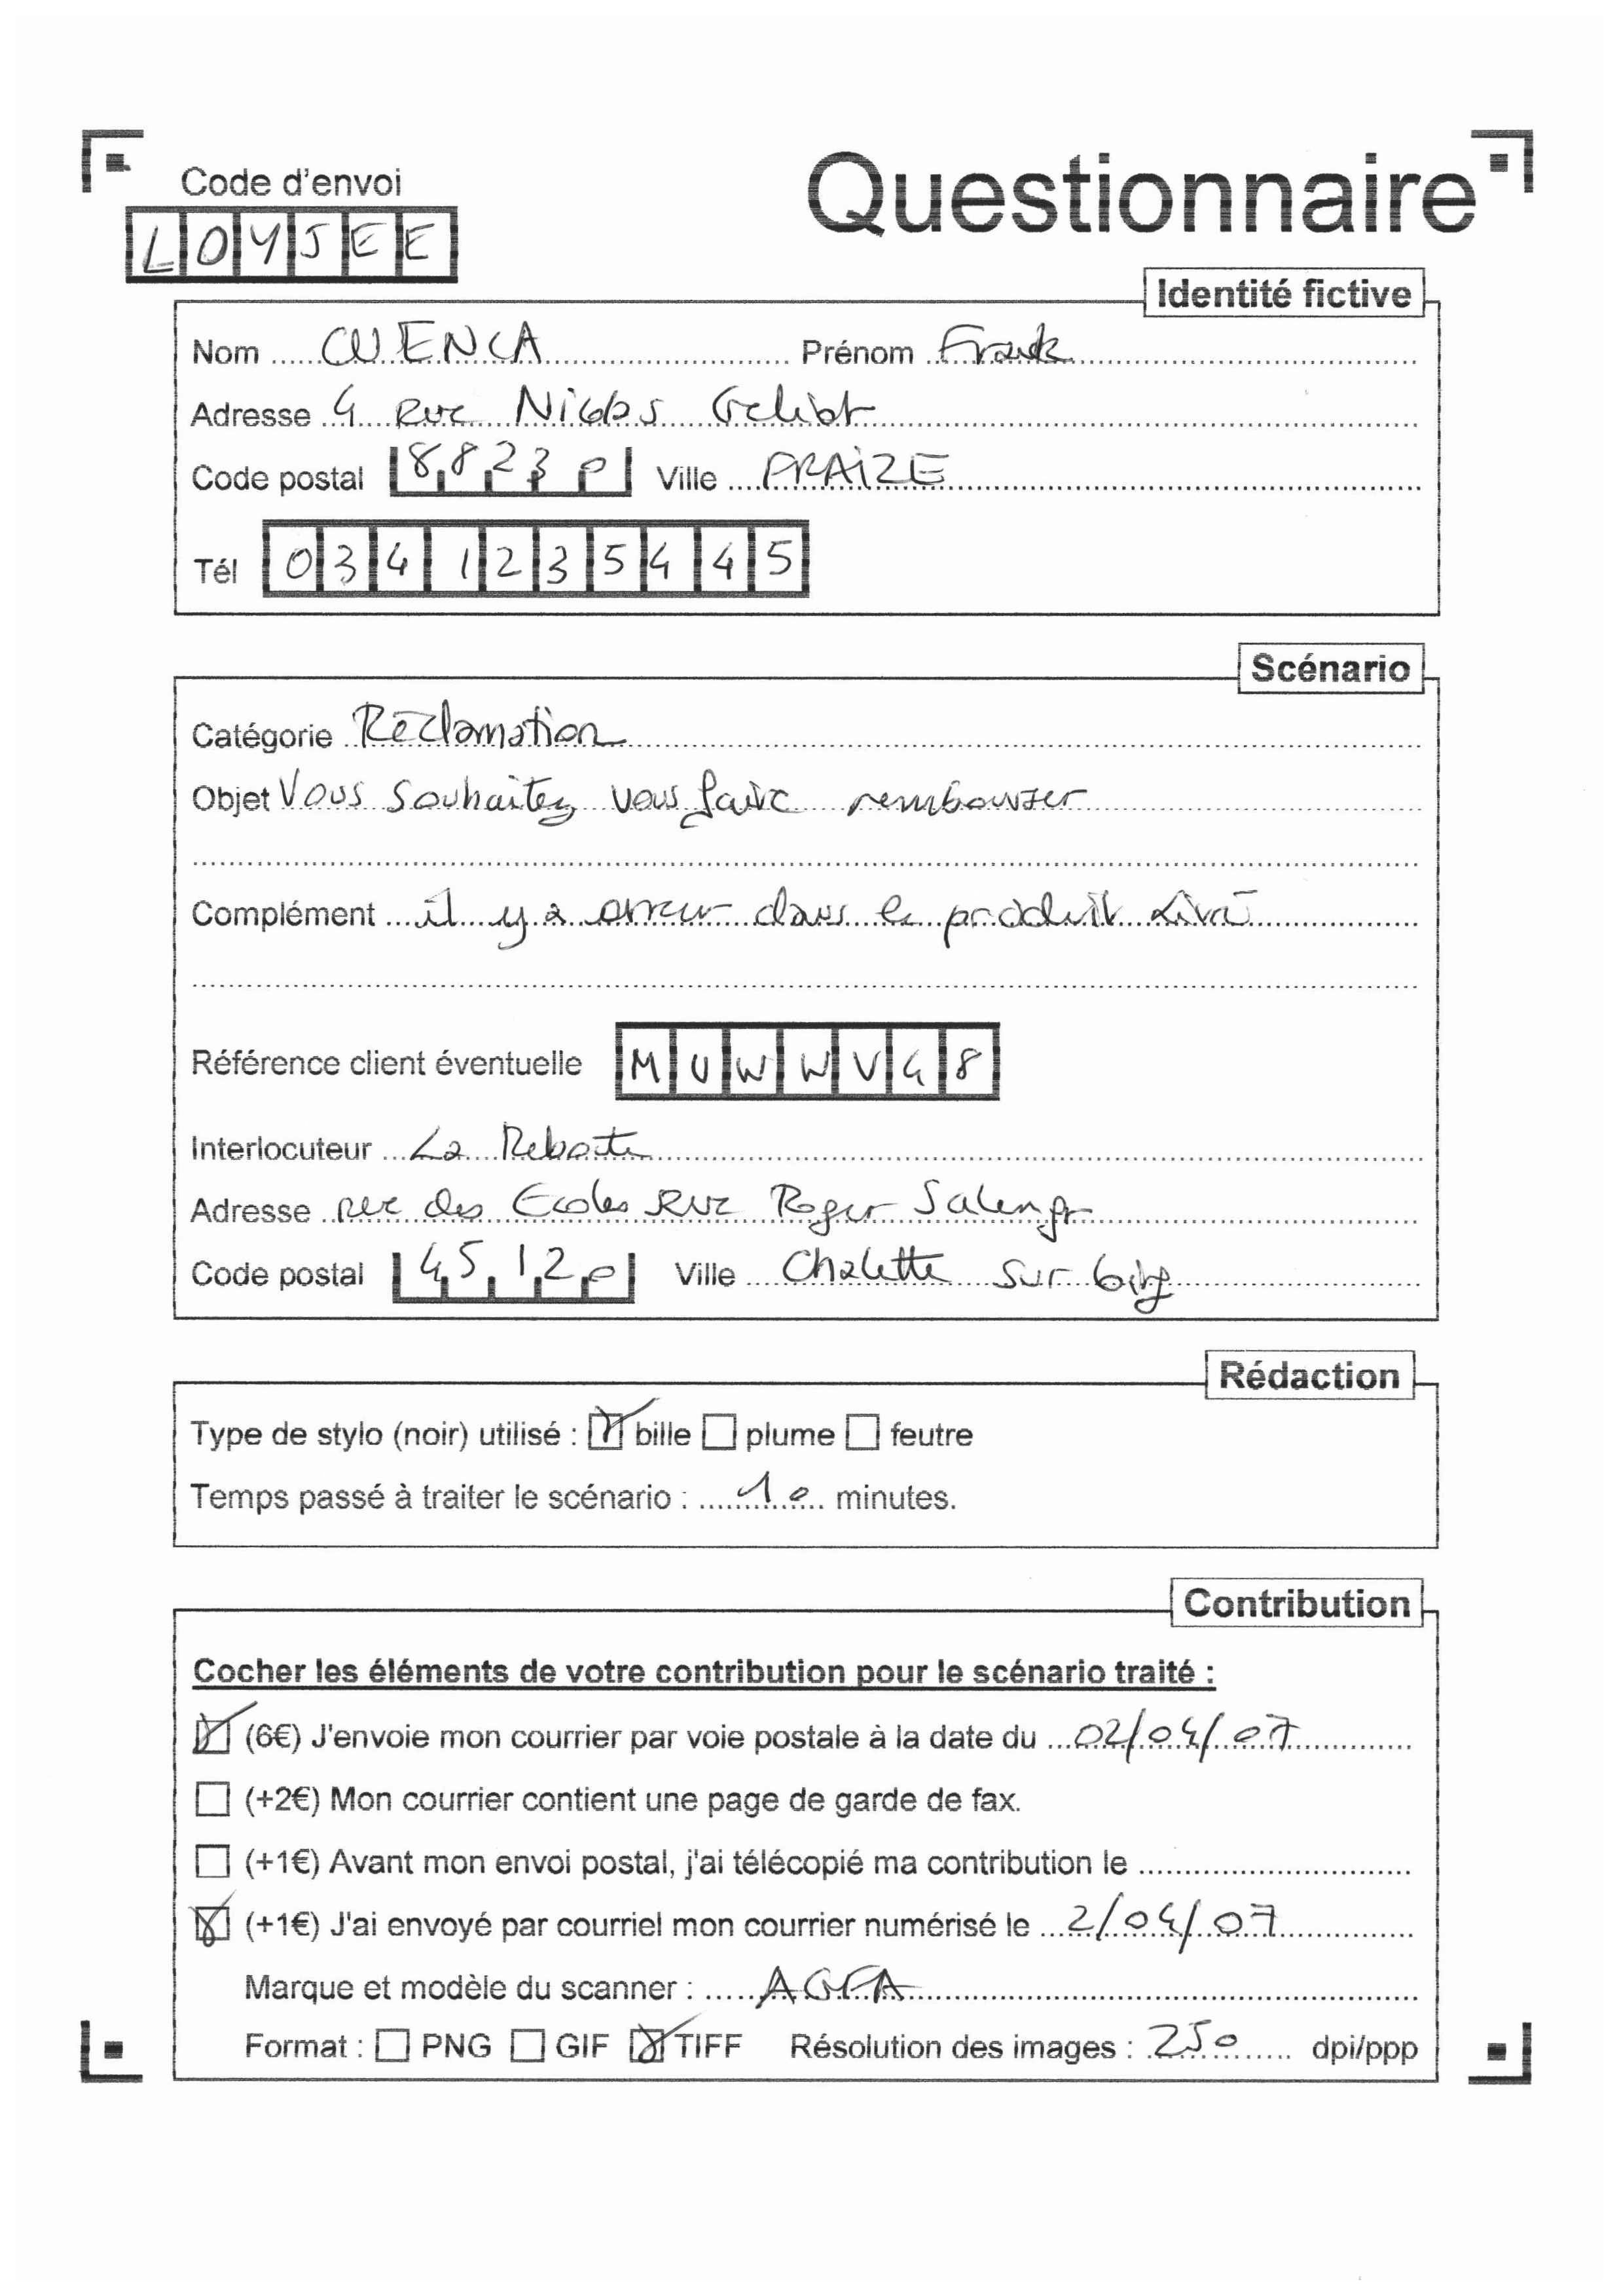 Code d'envoi
Questionnaire
LOYSEE
Identité fictive
Nom CUENCA Prénom Frank
Adresse 4 Rue Nicolas Gelibt
Code postal 88230 Ville FRAIZE
Tél 0341235445
Scénario
Catégorie Réclamation
Objet Vous souhaitez vous faire rembourser
Complément il y a erreur dans le produit livré
Référence client éventuelle MUWWVG8
Interlocuteur La Reboite
Adresse rue des Ecoles Rue Roger Salengr
Code postal 45120 Ville Chalette sur
Rédaction
Type de stylo (noir) utilisé : bille plume feutre
Temps passé à traiter le scénario : 10 minutes.
Contribution
Cocher les éléments de votre contribution pour le scénario traité :
(6€) J'envoie mon courrier par voie postale à la date du 02/04/07
(+2€) Mon courrier contient une page de garde de fax.
(+1€) Avant mon envoi postal, j'ai télécopié ma contribution le
(+1€) J'ai envoyé par courriel mon courrier numérisé le 2/04/07
Marque et modèle du scanner : AGFA
Format : PNG GIF TIFF Résolution des images : 250 dpi/ppp